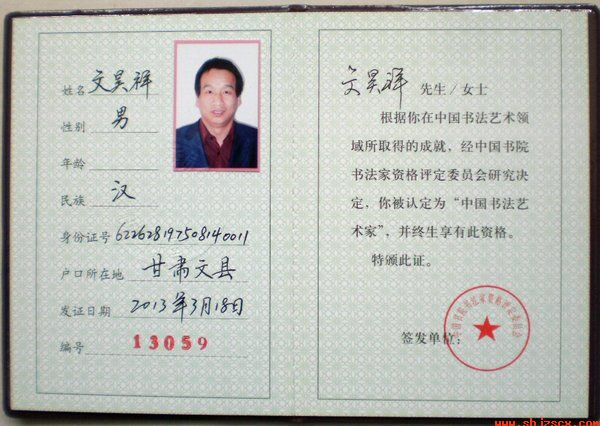 姓名 文昊祥
性别 男
年龄
民族 汉
身份证号 622628197508140011
户口所在地 甘肃文县
发证日期 2013年3月18日
编号 13059
文昊祥 先生/女士
根据你在中国书法艺术领
域所取得的成就，经中国书院
书法家资格评定委员会研究决
定，你被认定为“中国书法艺
术家”，并终生享有此资格。
特颁此证。
签发单位：
中国书院书法家资格评定委员会
www.shjzscx.com